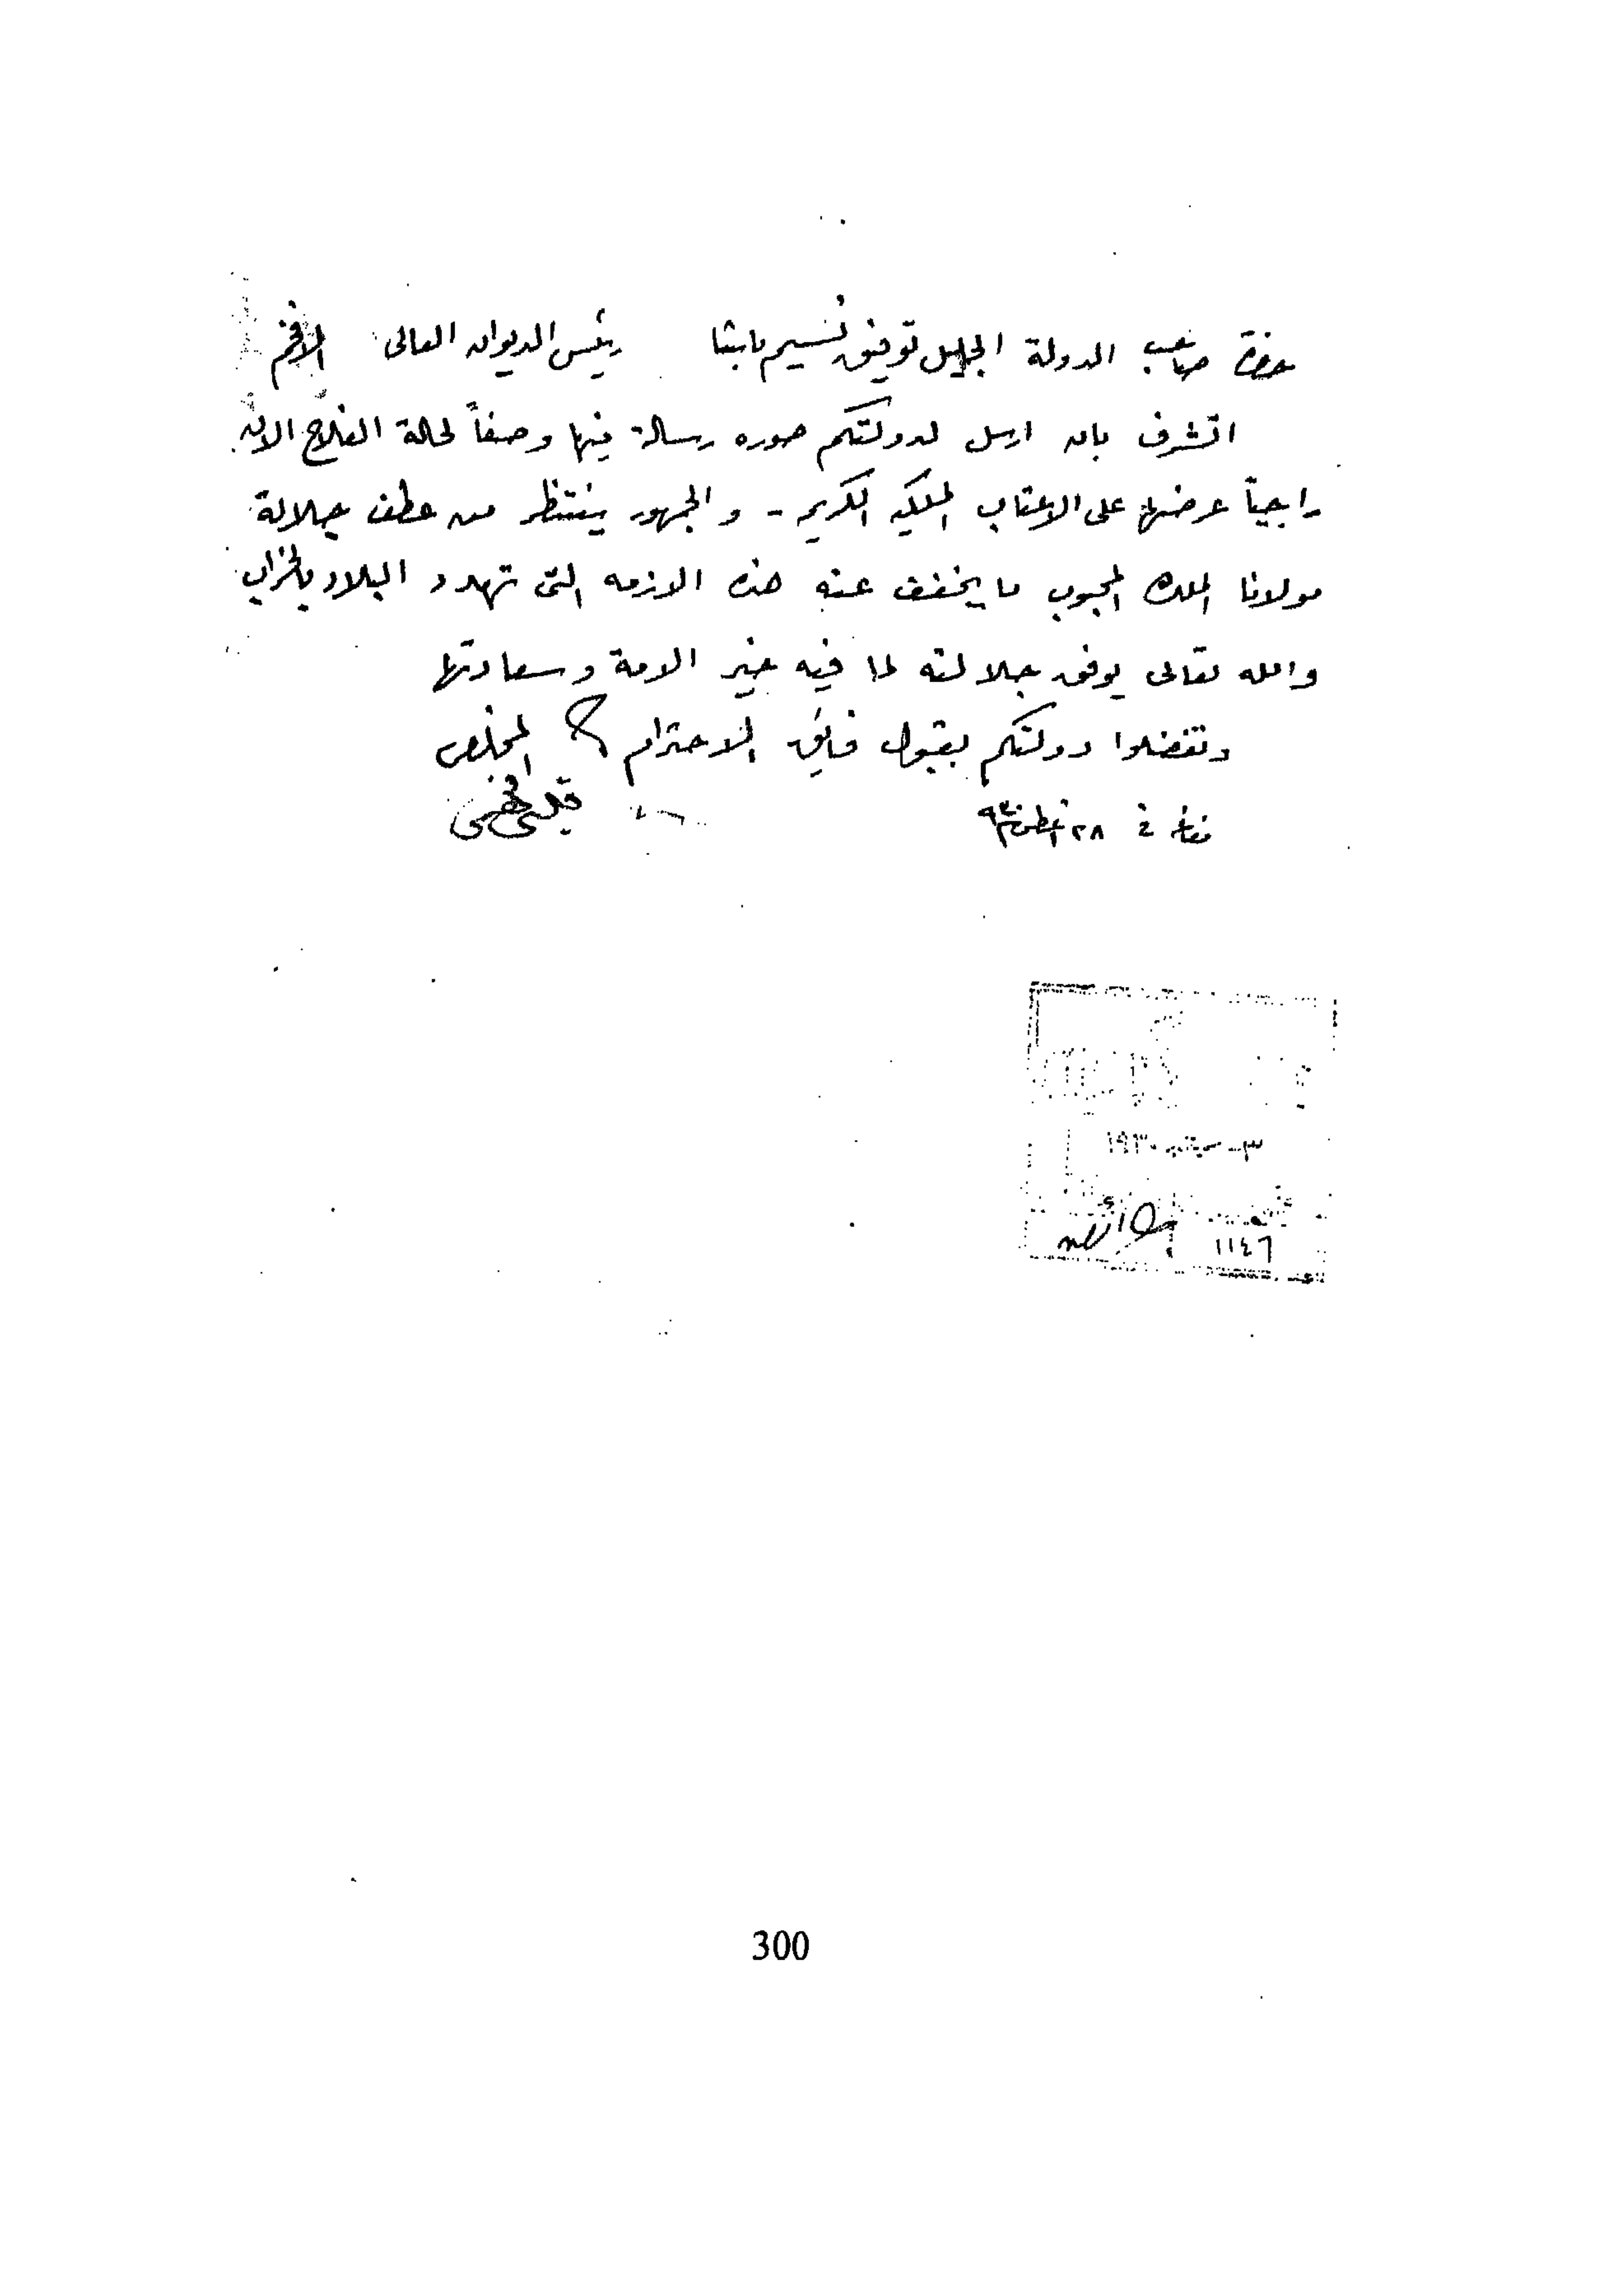 حضرة صاحب الدولة الجليل توفيق نسيم باشا رئيس الديوان العالى الافخم
اتشرف بان ارسل لدولتكم صوره رسالة فيها وصفاً لحالة الفلاح الان
راجياً عرضها على الاعتاب الملكيه الكريمه - والجمهور ينتظر من عطف جلالة
مولانا الملك المحبوب ما يخفف عنه هذه الازمه التى تهدد البلاد بالخراب
والله تعالى يوفق جلالته لما فيه خير الامة وسعادتها
وتفضلوا دولتكم بقبول فايق الاحترام المخلص
قلينى فهمى
فى ٢٨ اغسطس ٩٣٠
٣ - سبتمبر ١٩٣٠
١١٤٦
300